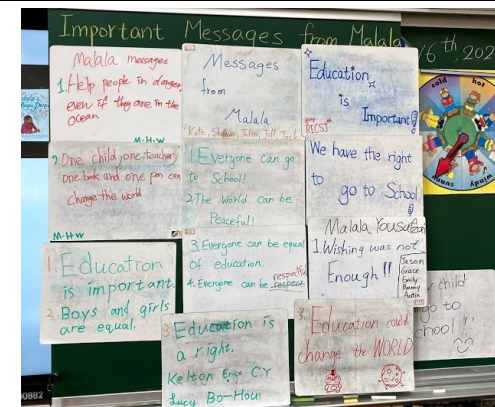 Important Messages from Malala
16th, 202
Malala messages
1. Help people in danger,
even if they are in the
Ocean
M.H.W
2. One child, one teacher,
one book and one pen can
change the world
M.H.W
1. Education
is important.
2. Boys and girls
are equal.
Messages
from
Malala
1. Everyone can go
to School!
2. The World can be
Peaceful!
3. Everyone can be equal
of education.
4. Everyone can be respect
respectful
3. Education is
a right.
Kelton Erica CY
Lucy Bo-Hour
Education
is
Important!
We have the right
to
go to School
Malala Yousafzai
1. Wishing was not
Enough!!
Jason
Grace
Emily
Austin
3. Education could
change the WORLD
child
go to
chool!
cold
hot
sunny
windy
00882